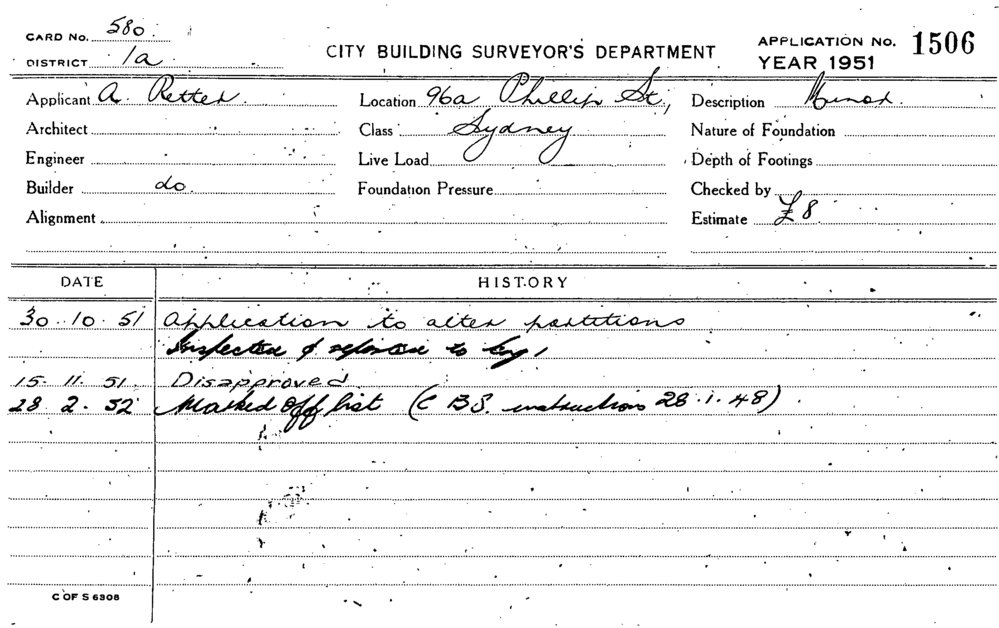 CARD No. 580.
DISTRICT 1a.
CITY BUILDING SURVEYOR'S DEPARTMENT
APPLICATION No. 1506
YEAR 1951
Applicant A. Retter. Location 96a Phillip St., Description Minor.
Architect Class Sydney Nature of Foundation
Engineer Live Load Depth of Footings
Builder do. Foundation Pressure Checked by
Alignment Estimate £8
DATE HISTORY
30.10.51 Application to alter partitions
Inspected & reported to Eng.
15.11.51. Disapproved
28 2.52 Marked off list (C B S. instructions 28.1.48)
C OF S 6308